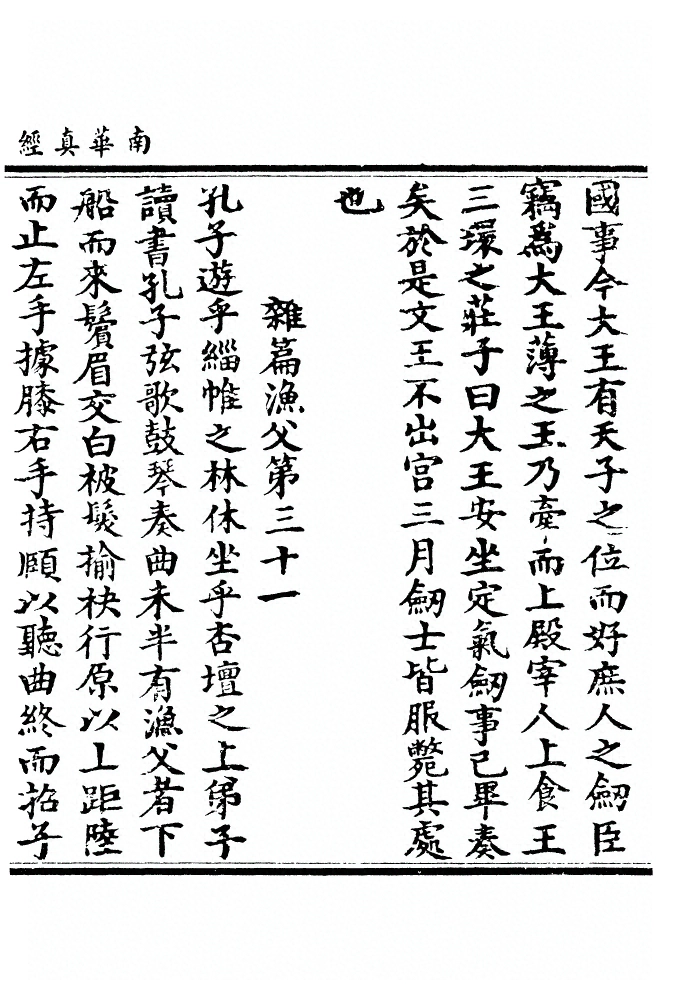 南華真經
國事今大王有天子之位而好庶人之劒臣
竊爲大王薄之王乃牽而上殿宰人上食王
三環之莊子曰大王安坐定氣劒事已畢奏
矣於是文王不出宮三月劒士皆服斃其處
也
雜篇漁父第三十一
孔子遊乎緇帷之林休坐乎杏壇之上弟子
讀書孔子弦歌鼓琴奏曲未半有漁父者下
船而來鬢眉交白被髮揄袂行原以上距陸
而止左手據膝右手持頤以聽曲終而招子